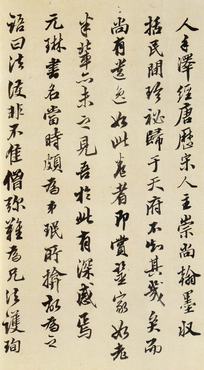 人手澤經唐歷宋人主崇尚翰墨収
括民間珍祕歸于天府不知其幾矣而
尚有遺逸如此卷者即賞鑒家如老
米輩亦未之見吾於此有深感焉
元琳書名當時頗為弟珉所揜故為之
語曰法護非不佳僧弥難為兄法護珣